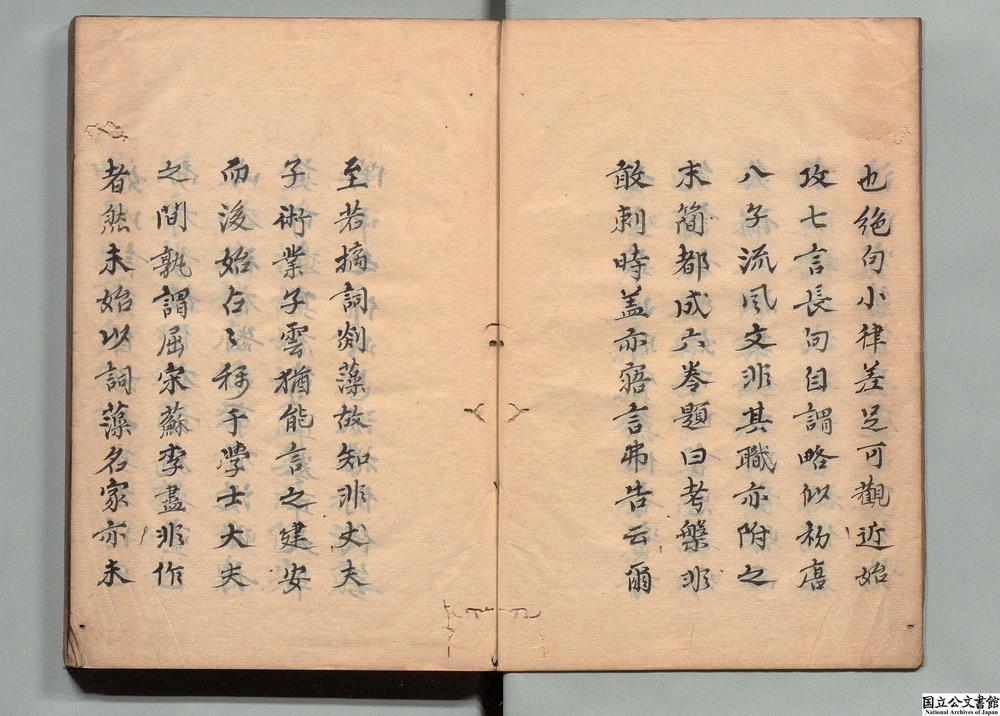 也絶句小律差足可觀近始
攻七言長句自謂略似初唐
八子流風文非其職亦附之
末簡都成六卷題曰考槃非
敢刺時盖亦寤言弗告云爾
至若摛詞剡藻故知非丈夫
子術業子雲猶能言之建安
而後始㠯稱于學士大夫
之間孰謂屈宋蘇李盡非作
者然未始以詞藻名家亦未
国立公文書館
National Archives of Japan